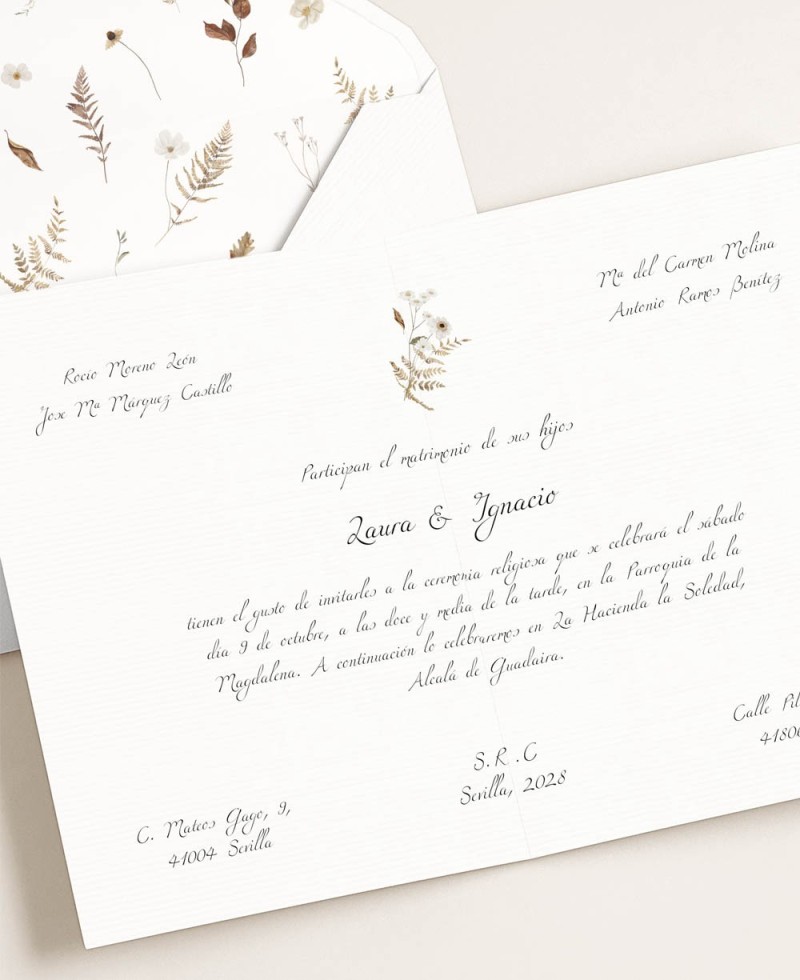 Rocio Moreno León
Jose Mª Márquez Castillo
Mª del Carmen Molina
Antonio Ramos Benítez
Participan el matrimonio de sus hijos
Laura & Ignacio
tienen el gusto de invitarles a la ceremonia religiosa que se celebrará el sábado
día 9 de octubre, a las doce y media de la tarde, en la Parroquia de la
Magdalena. A continuación lo celebraremos en La Hacienda la Soledad,
Alcalá de Guadaira.
S.R.C
Sevilla, 2028
C. Mateos Gago, 9,
41004 Sevilla
Calle